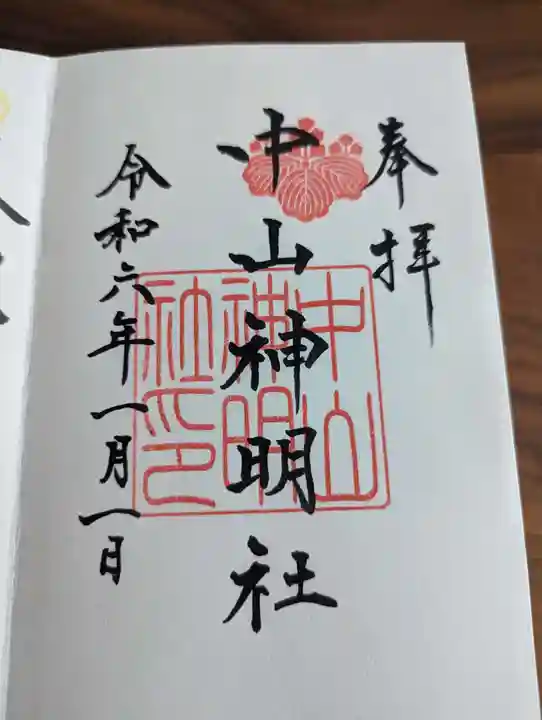 奉拝
中山神明社
令和六年一月一日
中山
神明
社印